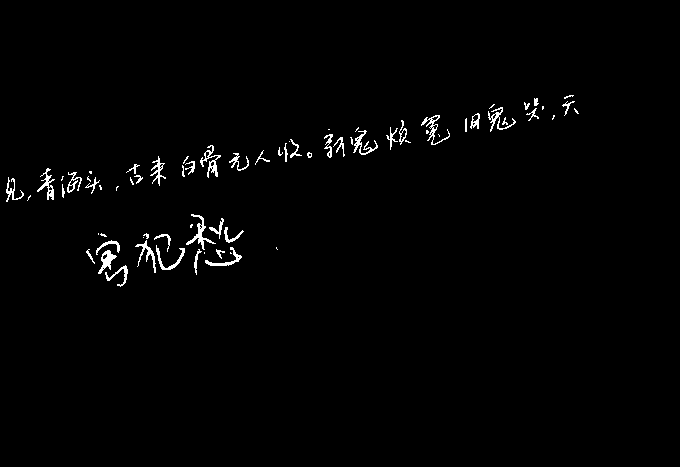 见,青海头,古来白骨无人收。新鬼烦冤旧鬼哭,天
害犯愁